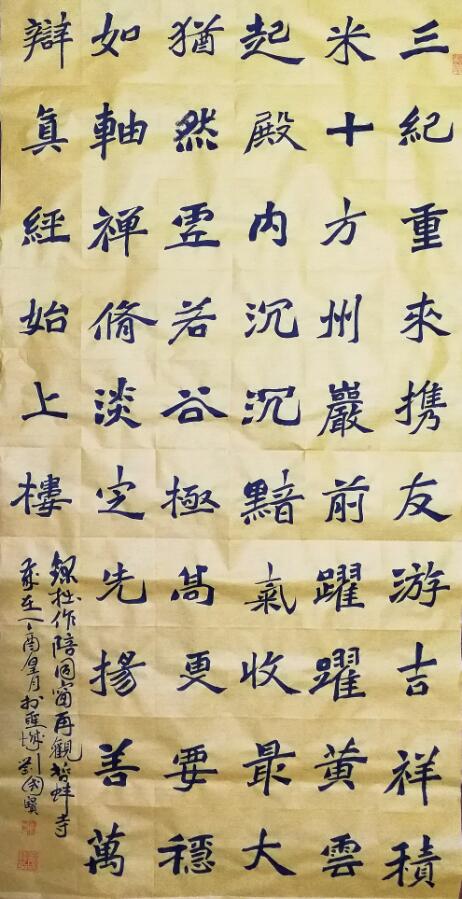 三紀重來携友游吉祥積
米十方州巖前躍躍黃雲
起殿内沉沉黯氣收最大
猶然虛若谷極高更要穩
如軸禅脩淡定先揚善萬
辯真經始上樓
錄拙作陪同窗再觀智蚌寺
歲在丁酉皇月於聖城劉